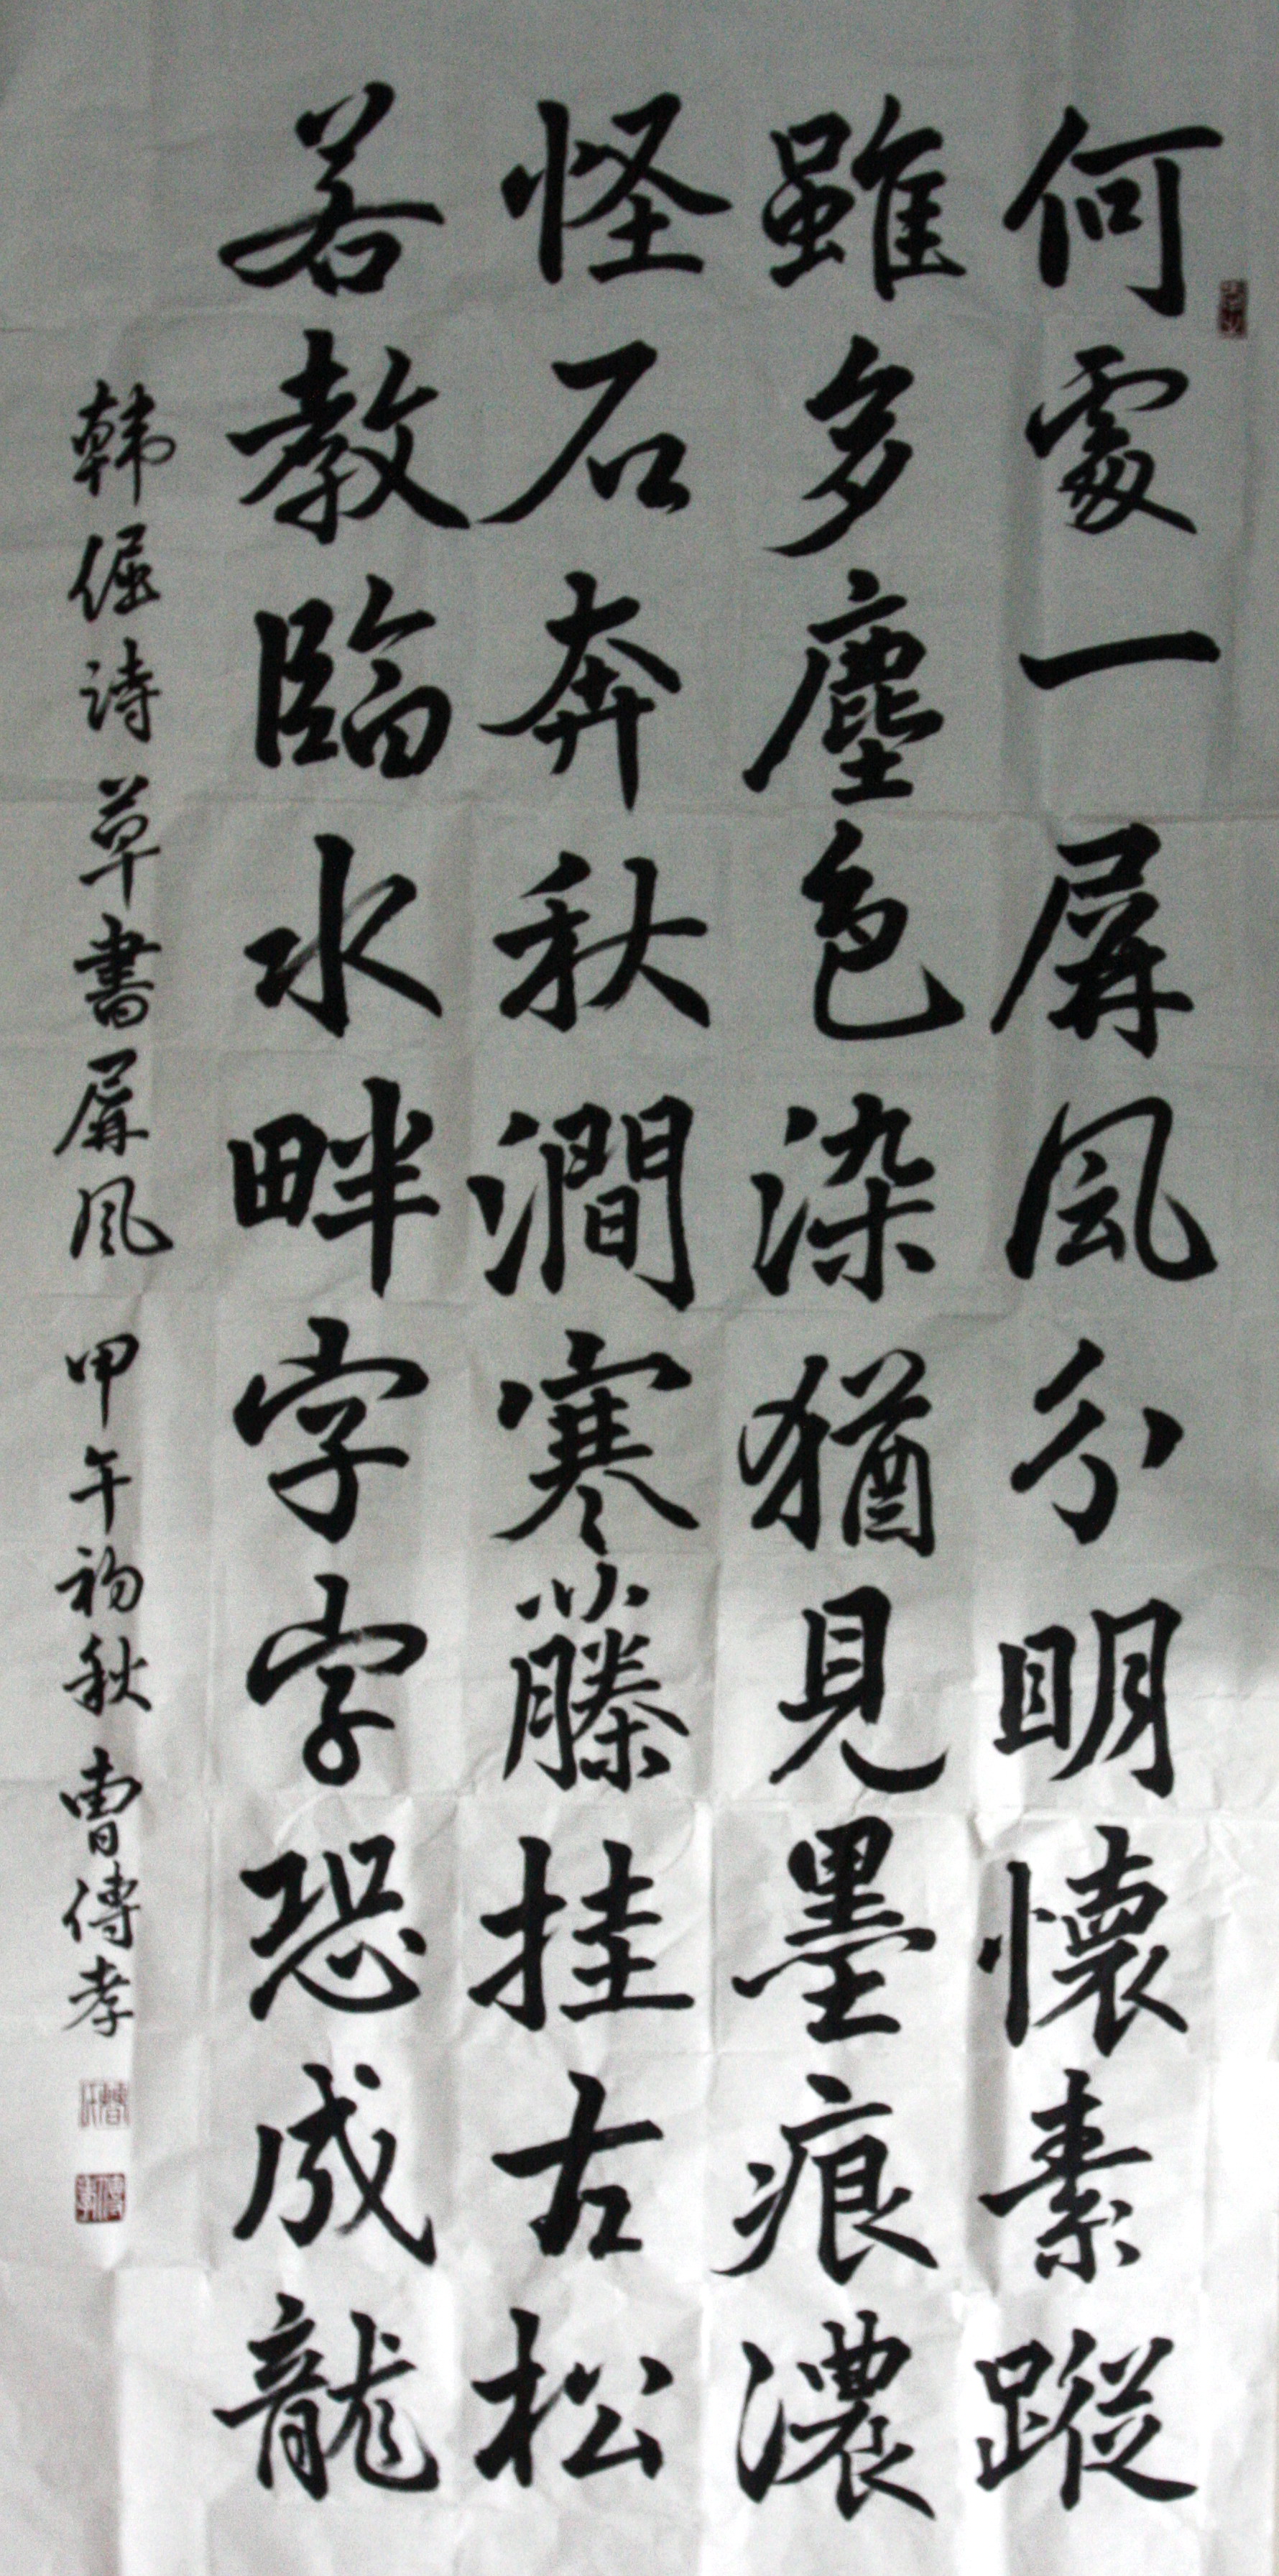 何處一屏風分明懷素蹤
雖多塵色染猶見墨痕濃
怪石奔秋澗寒藤挂古松
若教臨水畔字字恐成龍
韩偓詩草書屏風 甲午初秋 曹傳孝